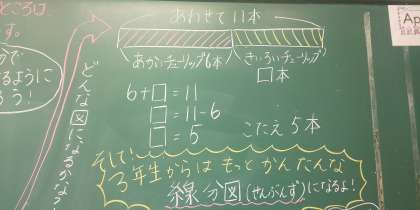 ところは
す。
で
るように
ろう!
どんな図になるかな?
あわせて11本
あかいチューリップ6本
きいろいチューリップ
□本
6+□=11
□=11-6
□=5
こたえ 5本
そして、
3年生からは もっと かんたんな
線分図(せんぶんず)になるよ!